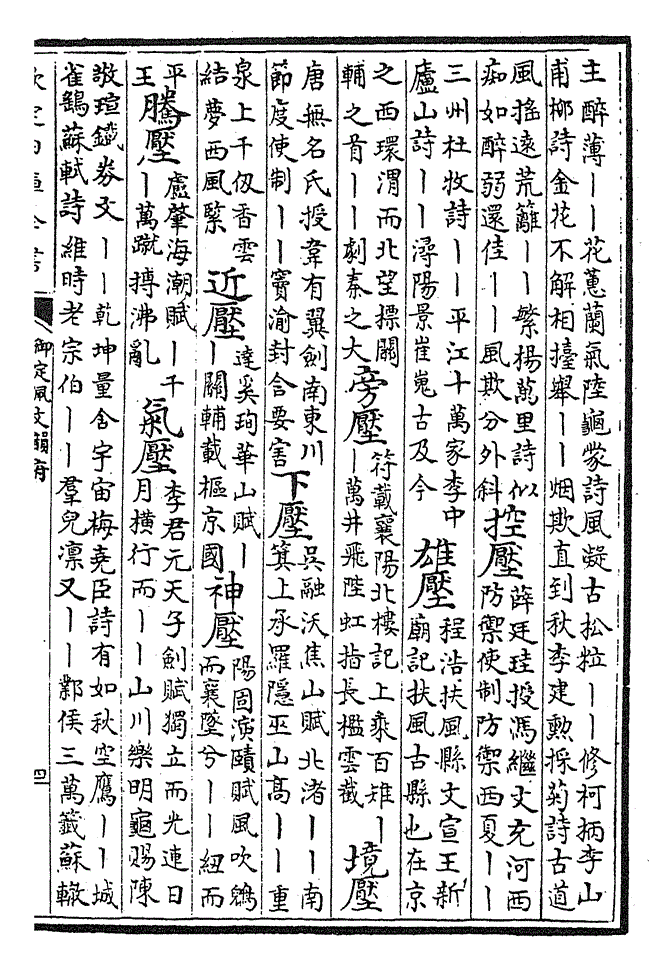 主醉薄丨丨花蕙蘭氣陸龜蒙詩風凝古松粒丨丨修柯柄李山
甫栁詩金花不解相擡舉丨丨烟欺直到秋李建勲採菊詩古道
風搖遠荒籬丨丨繁楊萬里詩似
痴如醉弱還佳丨丨風欺分外斜
控壓
薛廷珪授馮繼文充河西
防禦使制防禦西夏丨丨
三州杜牧詩丨丨平江十萬家李中
廬山詩丨丨潯陽景崔嵬古及今
雄壓
程浩扶風縣文宣王新
廟記扶風古縣也在京
之西環渭而北望摽闗
輔之首丨丨劇秦之大
旁壓
符載襄陽北樓記上乘百雉
丨萬井飛陛虹指長檻雲截
境壓
唐無名氏授韋有翼劍南東川
節度使制丨丨竇渝封含要害
下壓
吳融沃焦山賦北渚丨丨南
箕上承羅隱巫山高丨丨重
泉上千仭香雲
結夢西風緊
近壓
逹奚珣華山賦丨
丨闗輔載樞京國
神壓
陽固演賾賦風吹鷁
而襄墜兮丨丨紐而
平
王
騰壓
盧肇海潮賦丨千
丨萬蹴摶沸亂
氣壓
李君元天子劍賦獨立而光連日
月橫行而丨丨山川樂明龜賜陳
敬瑄鐵券文丨丨乾坤量含宇宙梅堯臣詩有如秋空鷹丨丨城
雀鷂蘇軾詩維時老宗伯丨丨羣兒凛又丨丨鄴侯三萬籖蘇轍
欽定四庫全書
御定佩文韻府
四